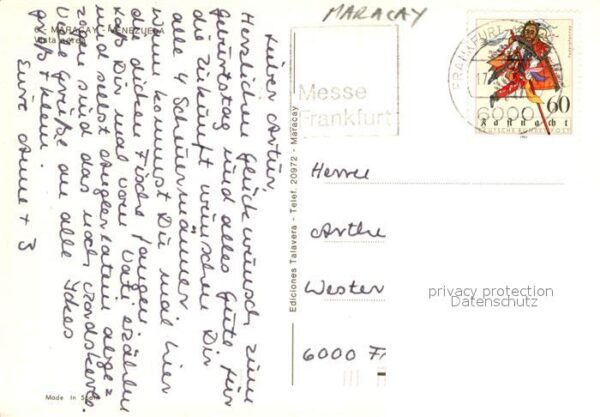 MARACAY
2 - MARACAY - VENEZUELA
Vista aérea
Lieber Arthur,
Herzlichen Glückwunsch zum
Geburtstag und alles Gute für
die Zukunft wünschen Dir
alle 4 Scheuermänner.
Wann kommst Du mal hier
die dicken Fische fangen.
Laß Dir mal vom Vati erzählen
und selbst Anglerlatein abge=
zogen sind das noch Mordskerle.
Viele Grüße an alle
groß + klein.
Eure Anne + 3
Made in Spain
Ediciones Talavera - Telef. 20972 - Maracay
Messe
Frankfurt
FRANKFURT
17.
6000
60
Fastnacht
DEUTSCHE BUNDESPOST
Herrn
Arthu
Wester
6000 F
privacy protection
Datenschutz